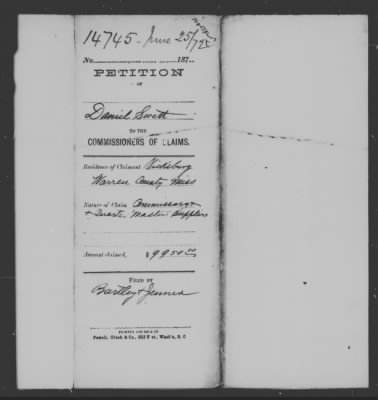 14745 - June 25/72
No. 187
PETITION
OF
Daniel Swett
TO THE
COMMISSIONERS OF CLAIMS.
Residence of Claimant Vicksburg
Warren County Miss
Nature of Claim Commissary
& Quarter Master Supplies
Amount claimed, $99500
FILED BY
Bartley &
PRINTED AND SOLD BY
Powell, & Co., F st., Wash'n, D. C